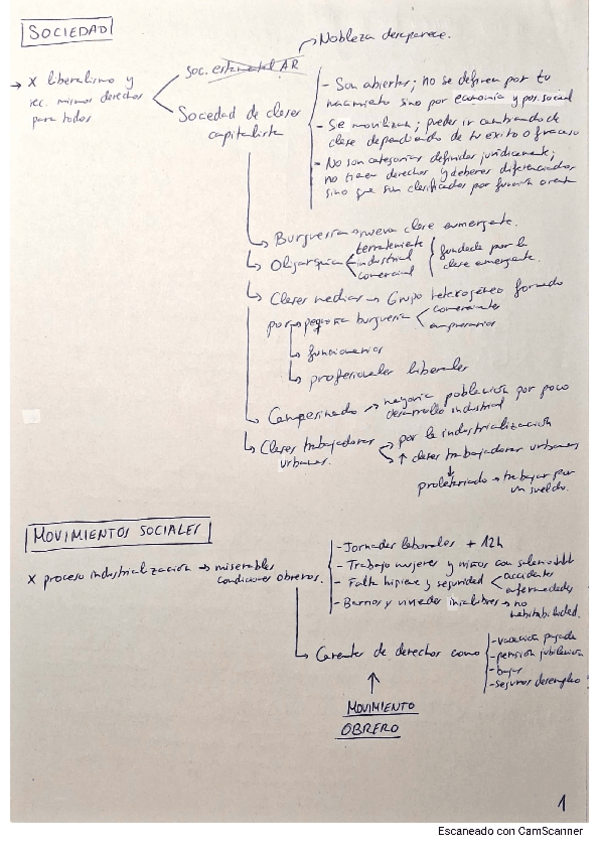 SOCIEDAD
→ Nobleza desaparece.
→ x liberalismo y
rec. mismos derechos
para todos
soc. estamental AR
Sociedad de clases
capitalista
- Son abiertas; no se definen por tu
nacimiento sino por economía y pos. social
- Se movilizan; puedes ir cambiando de
clase dependiendo de tu éxito o fracaso
- No son categorías definidas jurídicamente;
no tienen derechos y deberes diferenciados
sino que son clasificados por función o renta
→ Burguesía → nueva clase emergente.
→ Oligarquía
terrateniente
industrial
comercial
fundada por la
clase emergente.
→ Clases medias → Grupo heterogéneo formado
por → pequeña burguesía
comerciantes
empresarios
→ funcionarios
→ profesionales liberales
→ Campesinado → mayoría población por poco
desarrollo industrial
→ Clases trabajadoras
urbanas.
→ por la industrialización
→ ↑ clases trabajadoras urbanas
↓
proletariado → trabajar por
un sueldo.
MOVIMIENTOS SOCIALES
x proceso industrialización → miserables
condiciones obreros.
- Jornadas laborales + 12h
- Trabajo mujeres y niños con salario
- Falta higiene y seguridad
accidentes
enfermedades
- Barrios y viviendas insalubres → no
habitabilidad.
→ Carentes de derechos como
- vacación pagada
- pensión jubilación
- bajas
- seguros desempleo
↑
MOVIMIENTO
OBRERO
1
Escaneado con CamScanner